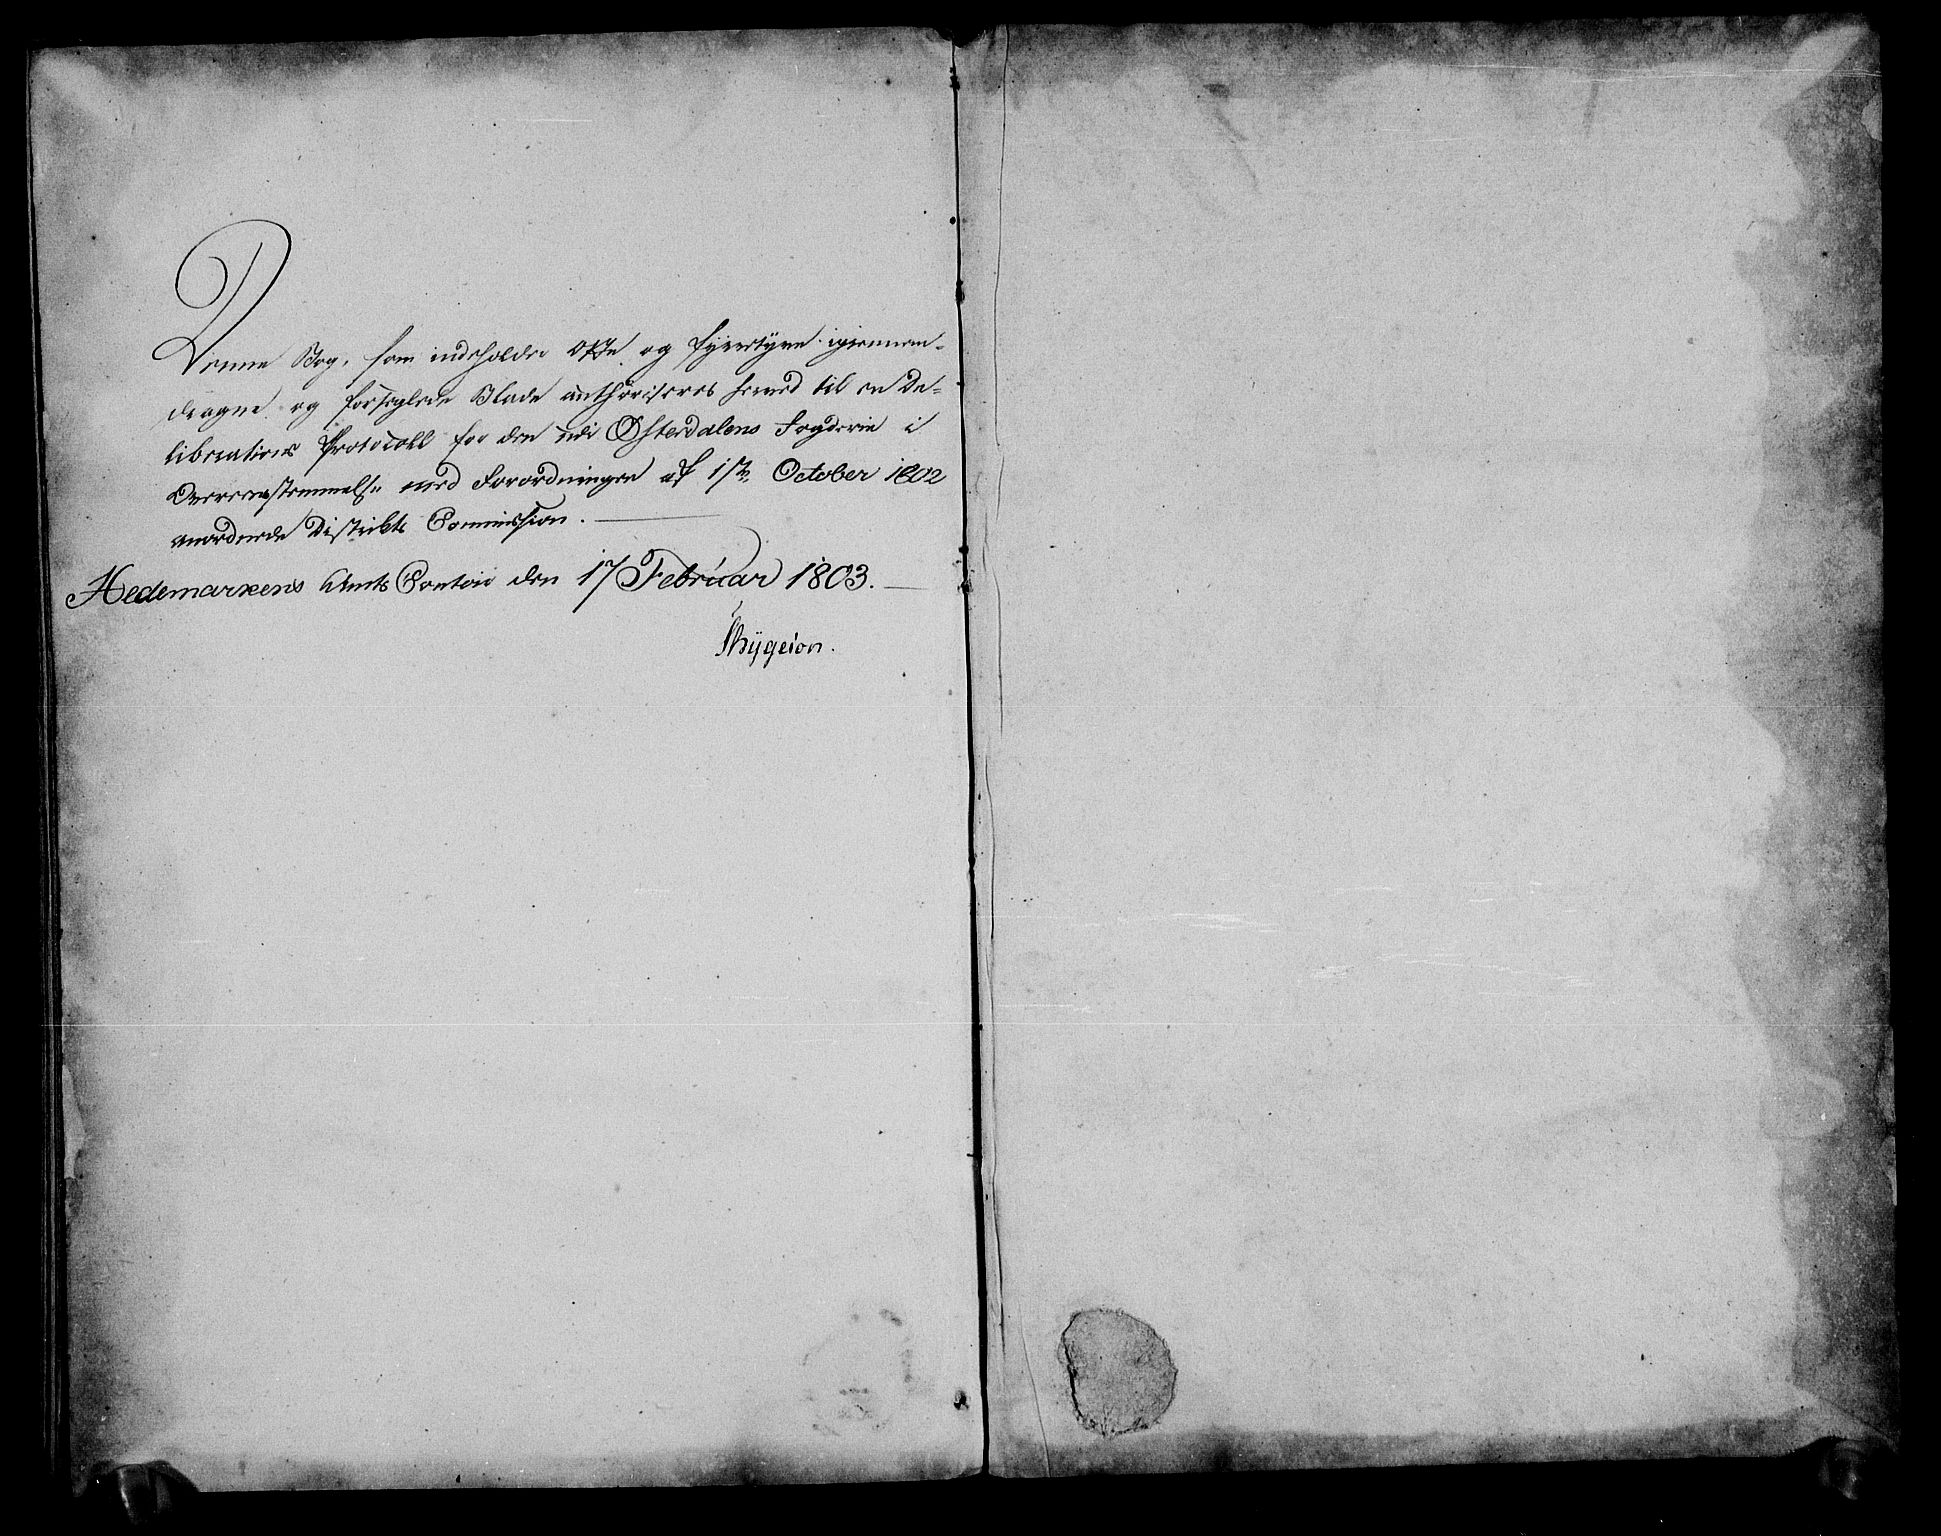 Denne Bog, som indeholder Otte og Fyrretyve igiennem-
dragne og forseglede Blade authoriseres herved til en De-
liberations Protocoll for den udi Østerdalens Fogderie i
Overeenstemmelse med Forordningen af 1ste October 1802
anordnede Districts Commission.
Hedemarkens Amts Contoir den 17 Februar 1803.
Thygeson.